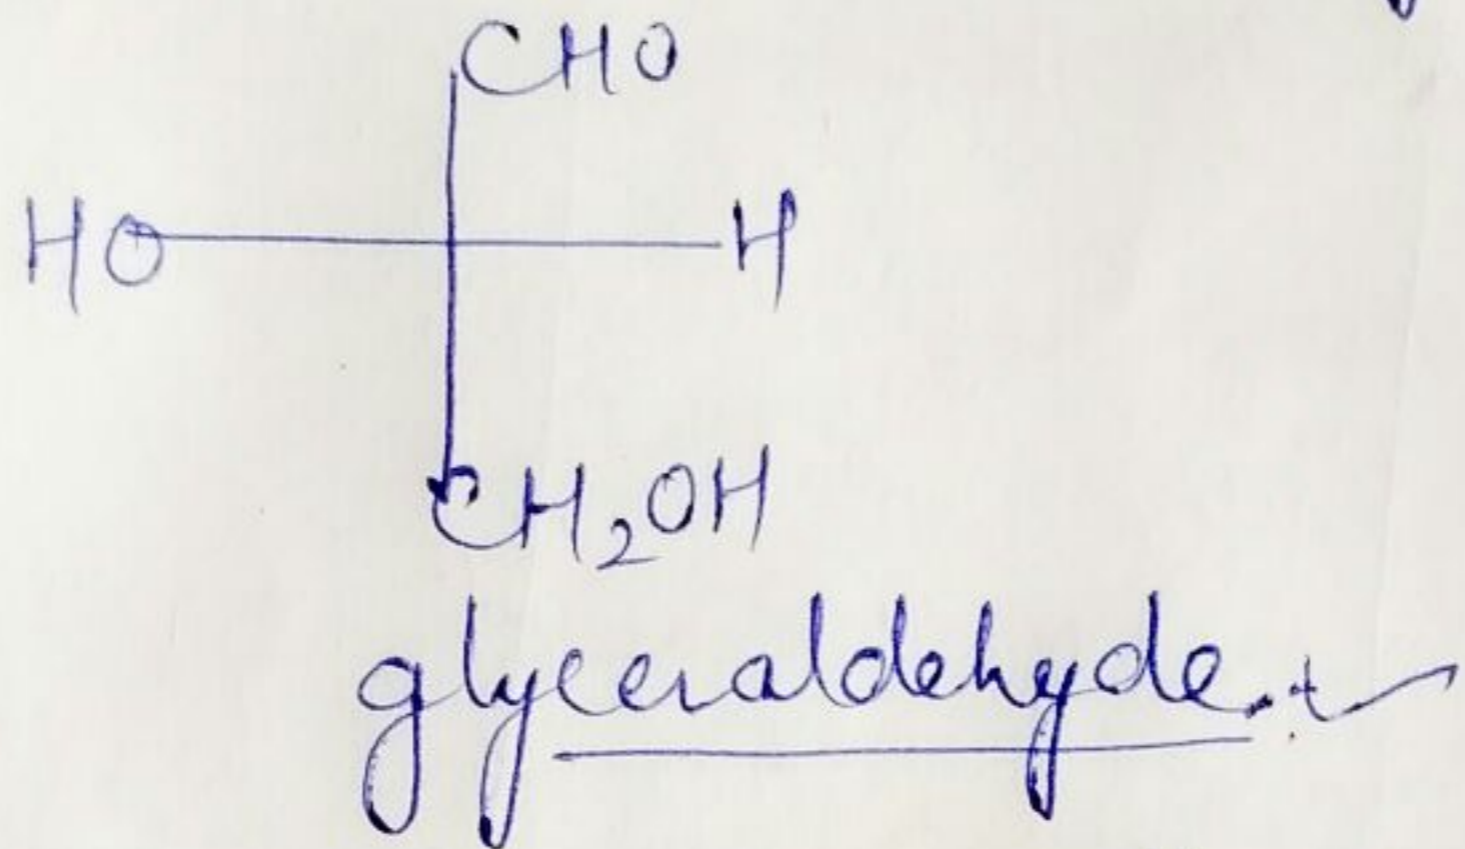 CHO
HO H
CH₂OH
glyceraldehyde.